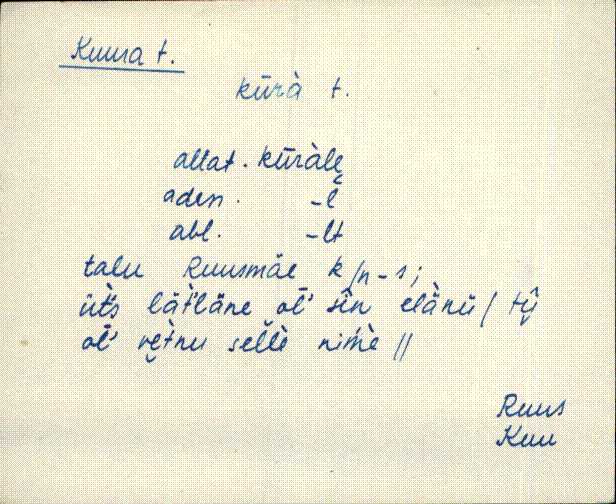 Kuura t.
kūrà t.
allat. kūràlę
adess. -l̆
abl. -lt
talu Ruusmäe k/n-s;
üt̀s lät̀läne ol̄' sîn elànü / tŷ
ol̄' vẹt̀nu sell̀è nim̀è //
Ruus
Kuu